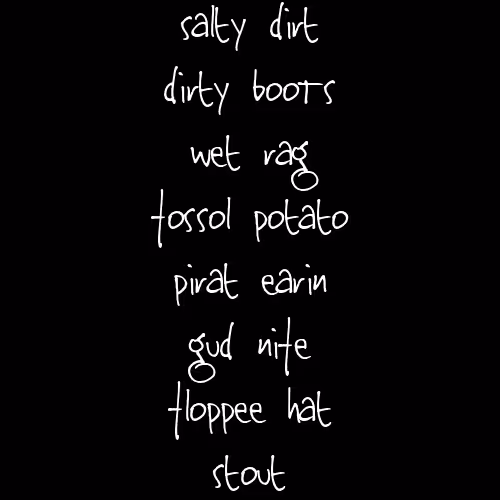 salty dirt
dirty boots
wet rag
fossol potato
pirat earin
gud nife
floppee hat
stout